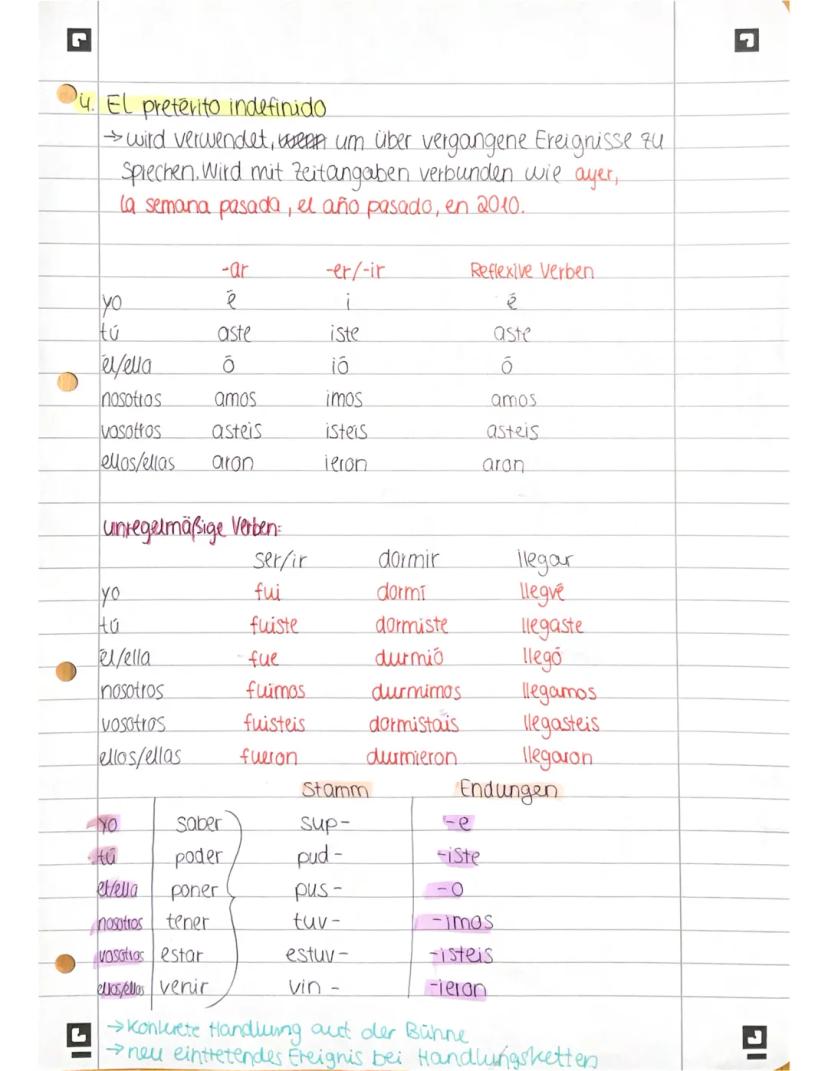 4. El pretérito indefinido
→ wird verwendet, wenn um über vergangene Ereignisse zu
sprechen. Wird mit Zeitangaben verbunden wie ayer,
la semana pasada, el año pasado, en 2010.
-ar -er/-ir Reflexive Verben
yo é i é
tú aste iste aste
él/ella ó ió ó
nosotros amos imos amos
vosotros asteis isteis asteis
ellos/ellas aron ieron aron
unregelmäßige Verben:
ser/ir dormir llegar
yo fui dormí llegvé
tú fuiste dormiste llegaste
él/ella fue durmió llegó
nosotros fuimos durmimos llegamos
vosotros fuisteis dormistais llegasteis
ellos/ellas fueron durmieron llegaron
Stamm Endungen
yo saber sup- -e
tú poder pud- -iste
él/ella poner pus- -o
nosotros tener tuv- -imos
vosotros estar estuv- -isteis
ellos/ellas venir vin- -ieron
→ Konkrete Handlung auf der Bühne
→ neu eintretendes Ereignis bei Handlungsketten